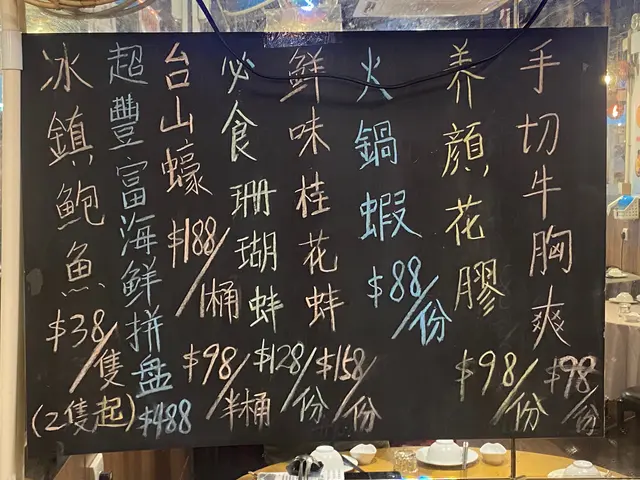 手切牛胸爽
$98/份
养顏花膠
$98/份
火鍋蝦
$88/份
鮮味桂花蚌
$158/份
必食珊瑚蚌
$128/份
台山蠔
$188/1桶
$98/半桶
超豐富海鮮拼盘
$488
冰鎮鮑魚
$38/隻
(2隻起)